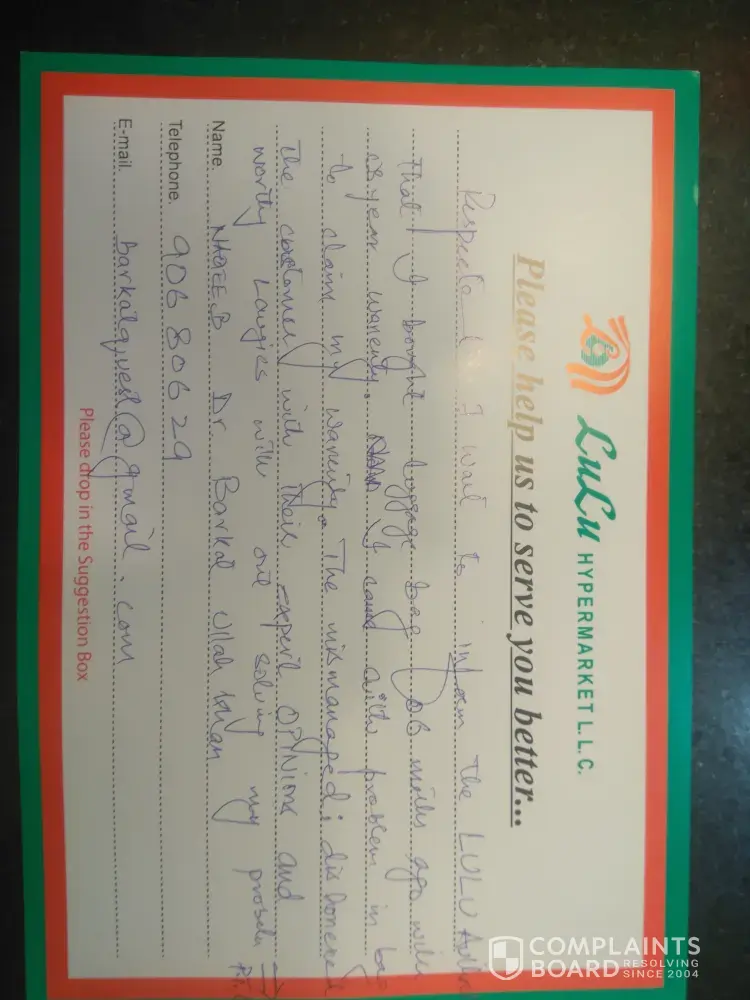 LuLu HYPERMARKET L.L.C.
Please help us to serve you better...
Respected I wait to inform The LULU
That I bought luggage bag 06 months ago with
warenty. I came with problem in
to claim my warenty. The mismanaged; dishonered
The costomer with their expert OPINIONS and
worthy Lougies with out solving my problem
Name. NAQEEB Dr. Barkat Ullah khan
Telephone. 906 806 29
E-mail. @gmail.com
Please drop in the Suggestion Box
COMPLAINTS
BOARD RESOLVING SINCE 2004